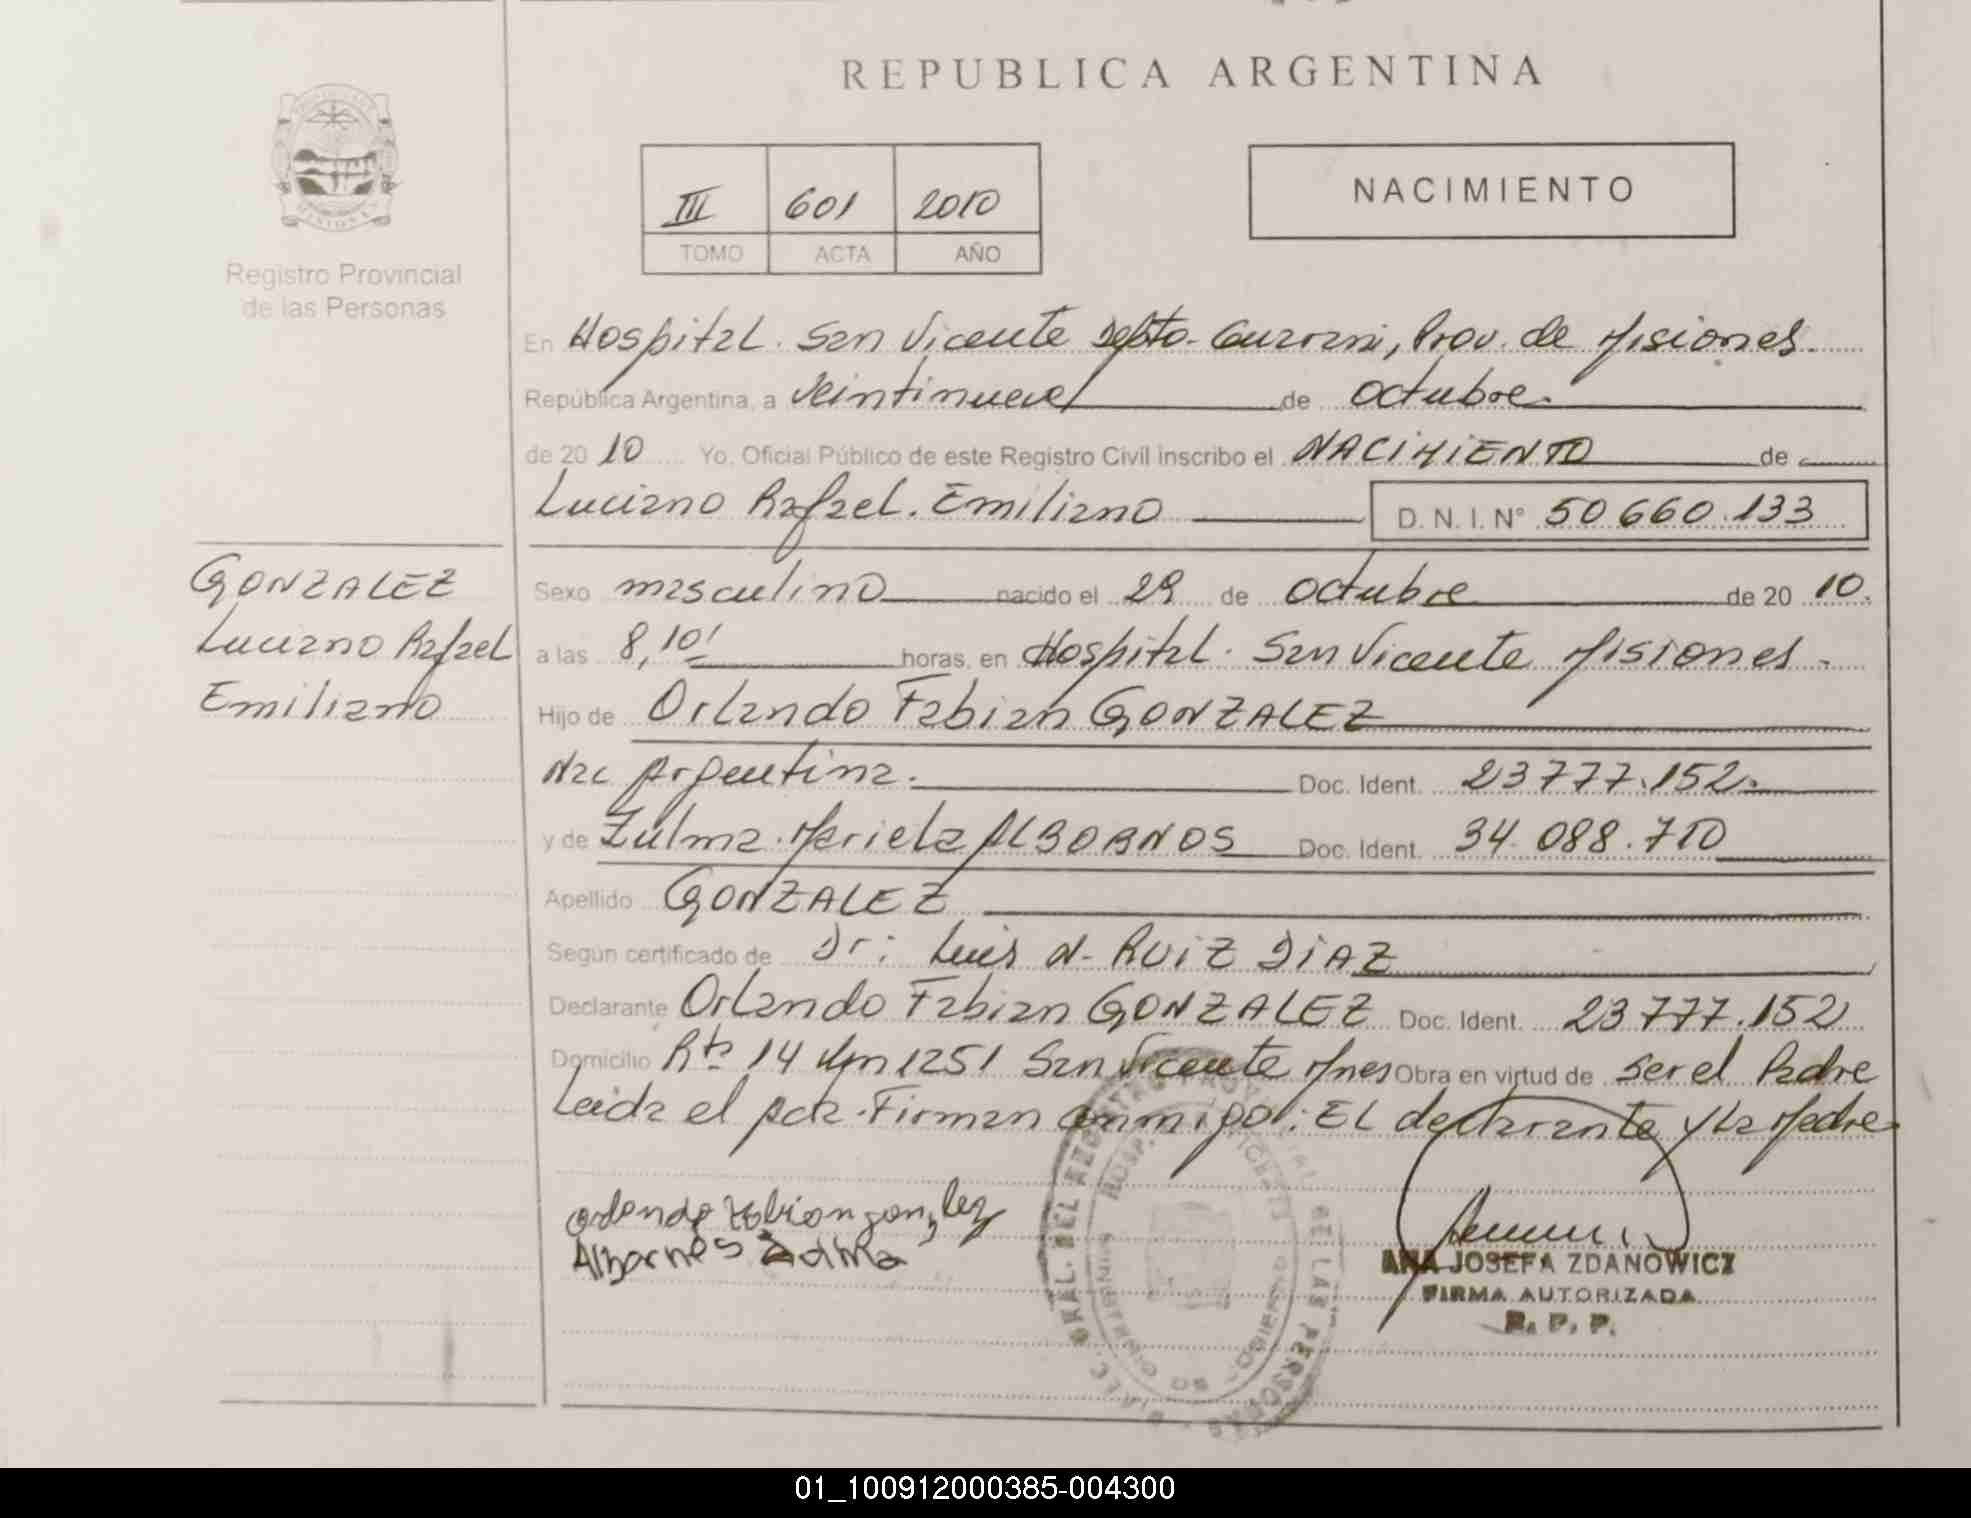 REPUBLICA ARGENTINA
III 601 2010
TOMO ACTA AÑO
NACIMIENTO
Registro Provincial
de las Personas
En Hospital. San Vicente Depto. Guarani, Prov. de Misiones.
República Argentina, a Veintinueve de octubre.
de 20 10 Yo, Oficial Público de este Registro Civil inscribo el NACIMIENTO de
Luciano Rafael. Emiliano D. N. I. Nº 50 660.133
GONZALEZ
Luciano Rafael
Emiliano
Sexo masculino nacido el 29 de octubre de 20 10.
a las 8,10' horas, en Hospital. San Vicente Misiones.
Hijo de Orlando Fabian GONZALEZ
Nac Argentina. Doc. Ident. 23 777.152.
y de Zulma. Mariela ALBORNOS Doc. Ident. 34.088.710
Apellido GONZALEZ
Según certificado de Dr: Luis N- RUIZ DIAZ
Declarante Orlando Fabian GONZALEZ Doc. Ident. 23 777.152
Domicilio Rta 14 Km 1251 San Vicente Mnes Obra en virtud de Ser el Padre
Leida el acta. Firman conmigo: EL declarante y La Madre
Orlando Fabian gonzalez
Albornos Zulma
ANA JOSEFA ZDANOWICZ
FIRMA AUTORIZADA
R. P. P.
01_100912000385-004300